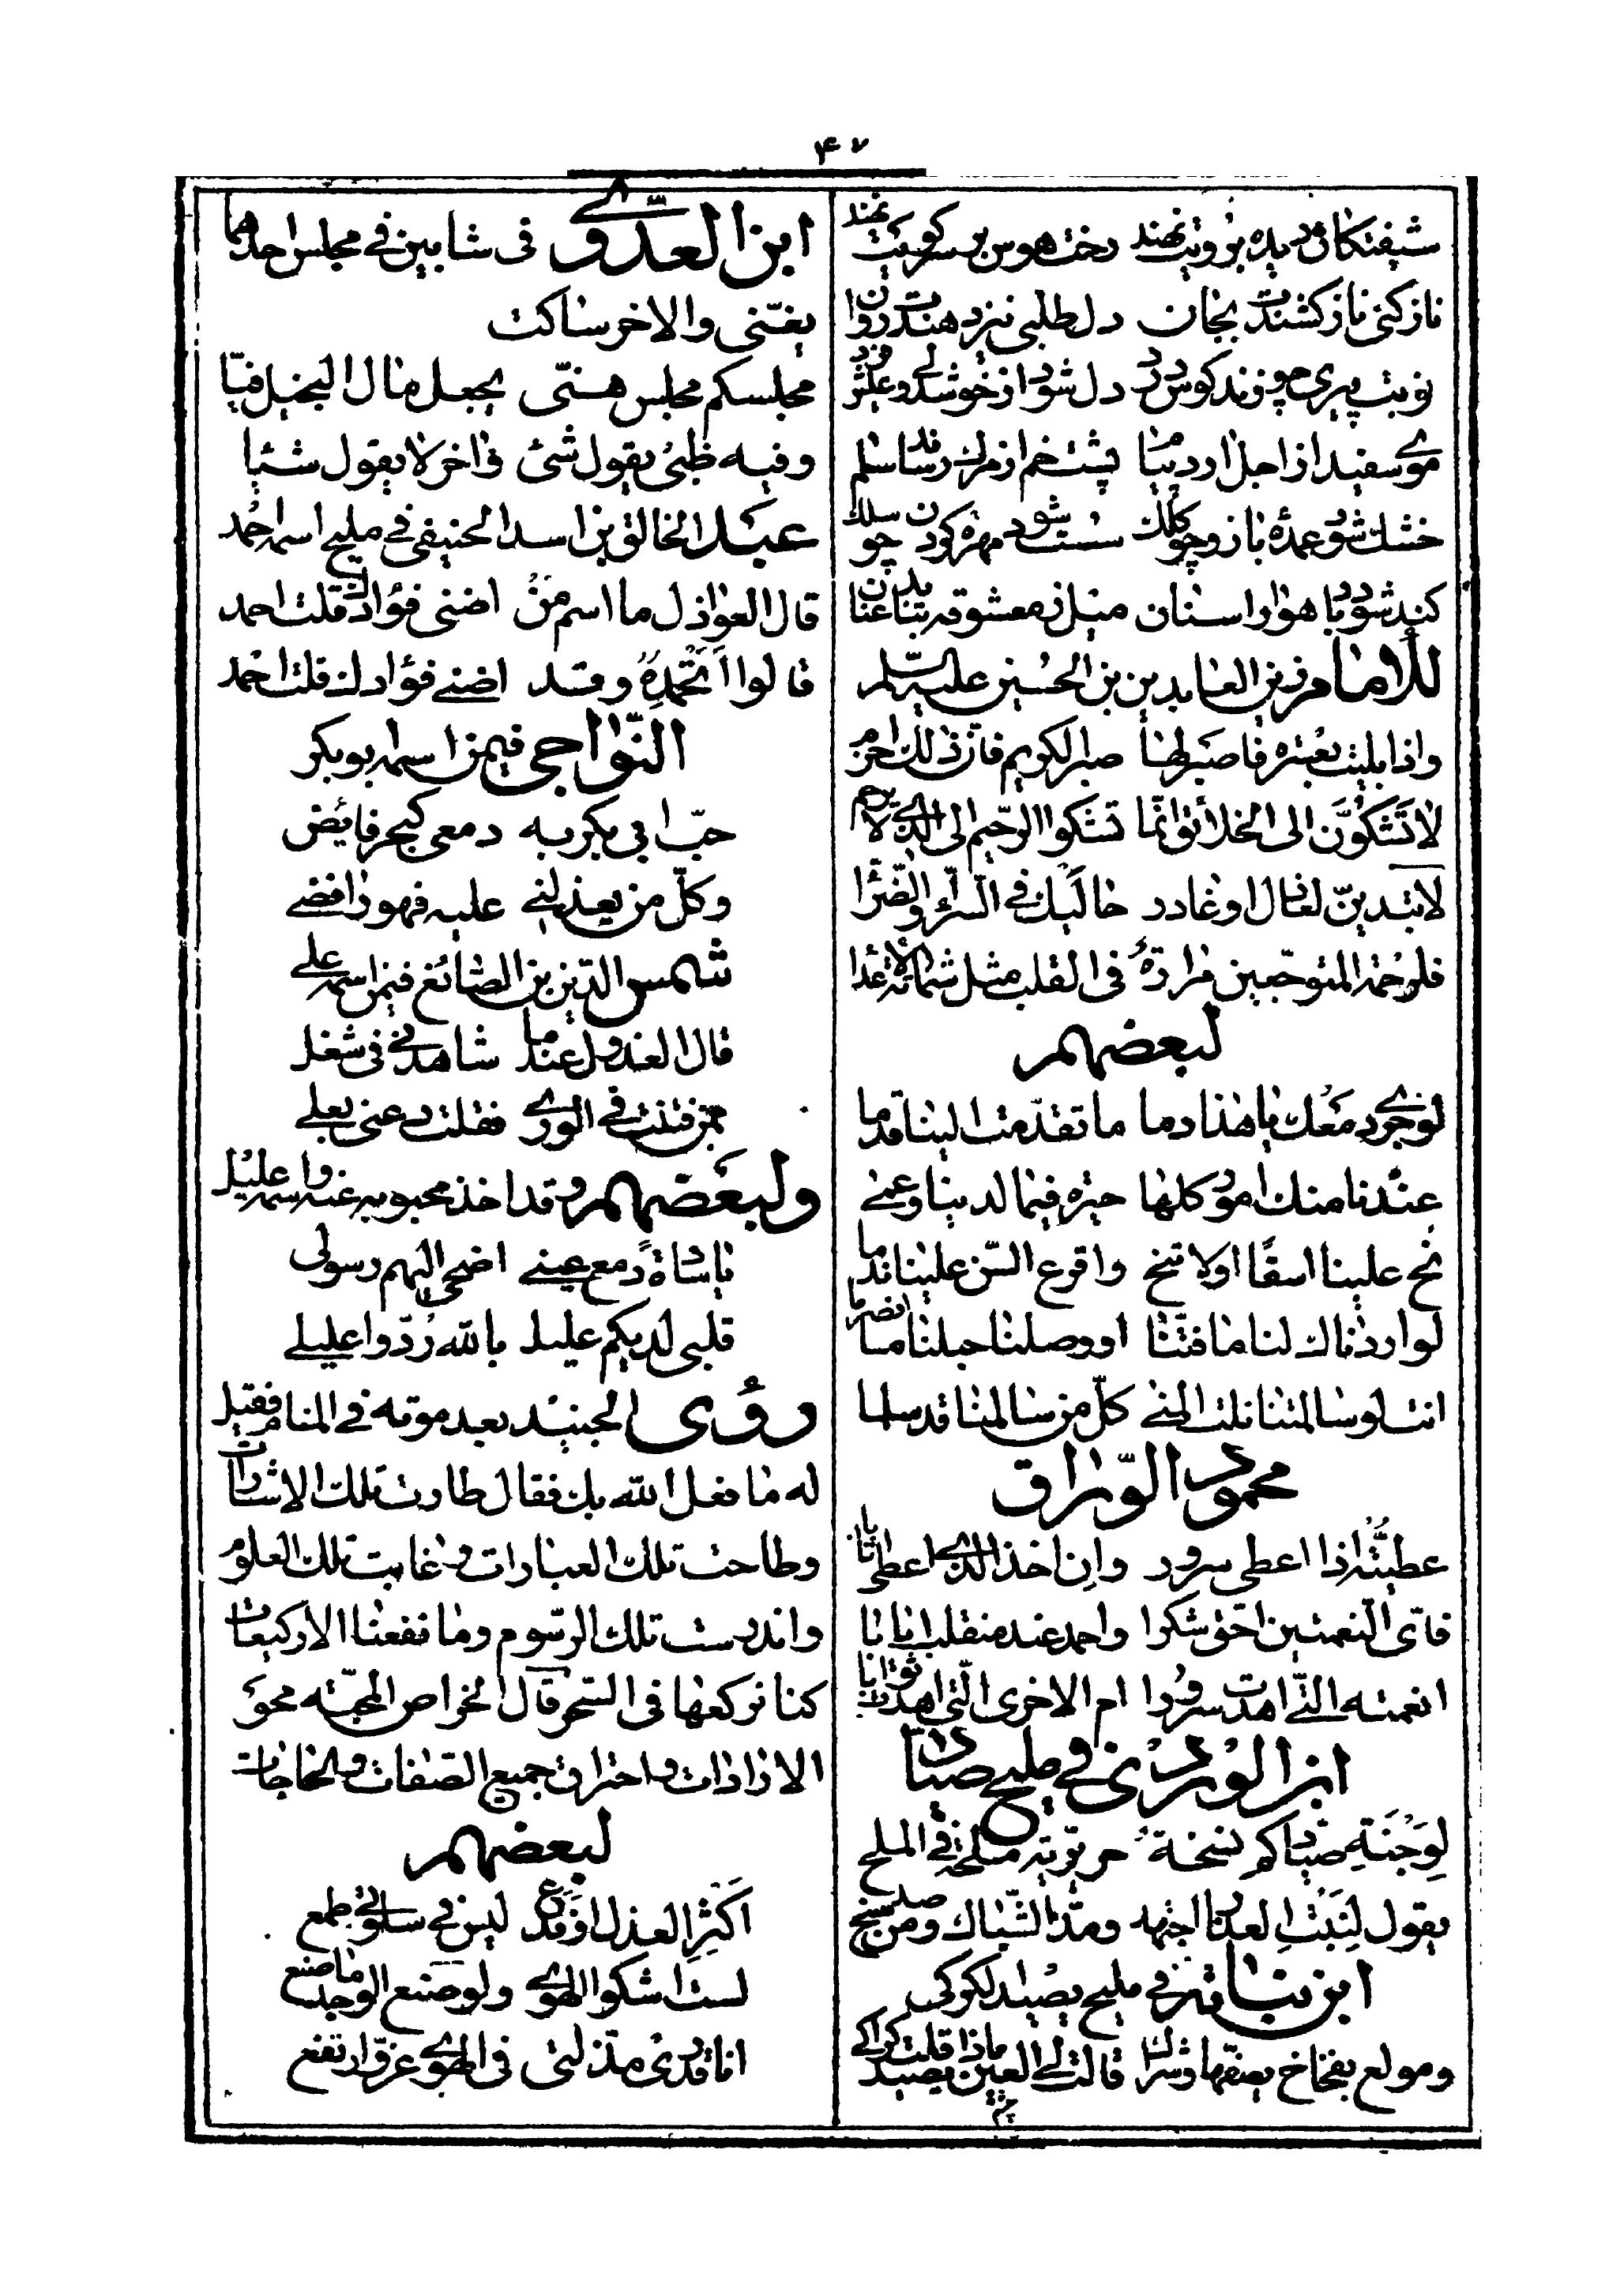 ۴۷
شیفتکان دیده برویت نهند رخت هوس بر سر کویت نهند
ناز کنی ناز کشندت بجان دل طلبی نیز دهندت روان
نوبت پیری چو زند کوس درد دل شود از خوشدلی و عیش فرد
موی سفید از اجل ارد پیام پشت خم از مرک رساند سلام
خشک شود عمده بازو چو کلک سست شود مهره کردن چو سلک
کند شود پا هوار اسنان میل ز معشوقه بتابد عنان
للامام زین العابدین بن الحسین علیه السلم
واذا بلیت بعثرة فاصبر لها صبر الکریم فان ذلک احزم
لا تشکون الی الخلائق انما تشکوا الرحیم الی الذی لا یرحم
لا تبدین لعاذل او غادر حالیک فی السراء والضراء
فلرحمة المتوجعین مرارة فی القلب مثل شماتة الاعداء
لبعضهم
لو جری دمعک یا هذا دما ما تقدمت الینا قدما
عندنا منک امور کلها حیرة فیما لدینا وعمی
نح علینا اسفا او لا تنح واقرع السن علینا ندما
لو اردناک لنا ما فتنا او وصلنا حبلنا ما انصرما
انت لو سالمتنا نلت المنی کل من سالمنا قد سلما
محمود الوراق
عطیته اذا اعطی سرور وان اخذ الذی اعطی اثابا
فای النعمتین احق شکرا واحمد عند منقلب ایابا
انعمته التی اهدت سرورا ام الاخری التی اهدت ثوابا
ابن الوردی فی ملیح صیاد
لوجنة صیادکم نسخة حریریة ملحة فی الملح
یقول لنبت العذار اجتهد ومد الشباک وصد من سنح
ابن نباتة فی ملیح یصید الکرکی
ومولع بفخاخ یصفها وشراک قالت لی العین ماذا یصید قلت کراکی
ابن العدوی فی شابین فی مجلس احدهما
یغنی والاخر ساکت
مجلسکم مجلس هنی یجعل مال البخیل فیا
وفیه ظبی یقول شئ واخر لا یقول شیئا
عبد الخالق بن اسد الحنیفی فی ملیح اسمه احمد
قال العواذل ما اسم من اضنی فؤادک قلت احمد
قالوا اتحمده وقد اضنی فؤادک قلت احمد
النواجی فیمن اسمه ابو بکر
حب ابی بکر به دمعی کبحر فائض
وکل من یعذلنی علیه فهو رافضی
شمس الدین بن الصائغ فیمن اسمه علی
قال العذول عندما شاهدنی فی شغل
بمن فتنت فی الوری فقلت دعنی بعلی
ولبعضهم وقد اخذ محبوبه عنه واسمه علیل
یا سادة دمع عینی اضحی الیهم رسولی
قلبی لدیکم علیل بالله ردوا علیلی
رؤی الجنید بعد موته فی المنام فقیل
له ما فعل الله بک فقال طارت تلک الاشارات
وطاحت تلک العبارات وغابت تلک العلوم
واندرست تلک الرسوم وما نفعنا الا رکیعات
کنا نرکعها فی السحر قال الخواص المحبة محو
الارادات واحتراق جمیع الصفات والحاجات
لبعضهم
اکثر العذل او فدع لیس فی سلوتی طمع
لست اشکوا الهوی ولو صنع الوجد ما صنع
انا قدری مذلتی فی الهوی عز وارتفع